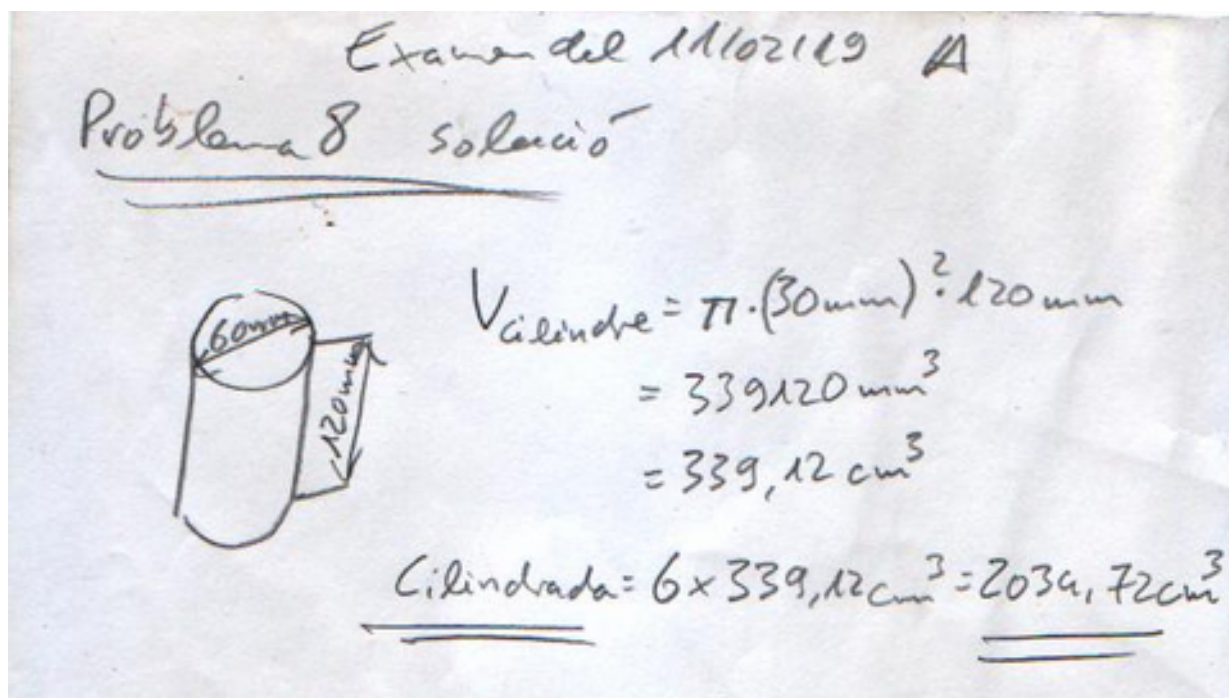 Examen del 11/02/19 A
Problema 8 solució
60mm
120mm
Vcilindre = π·(30mm)²·120mm
= 339120mm³
= 339,12 cm³
Cilindrada = 6×339,12cm³ = 2034,72cm³